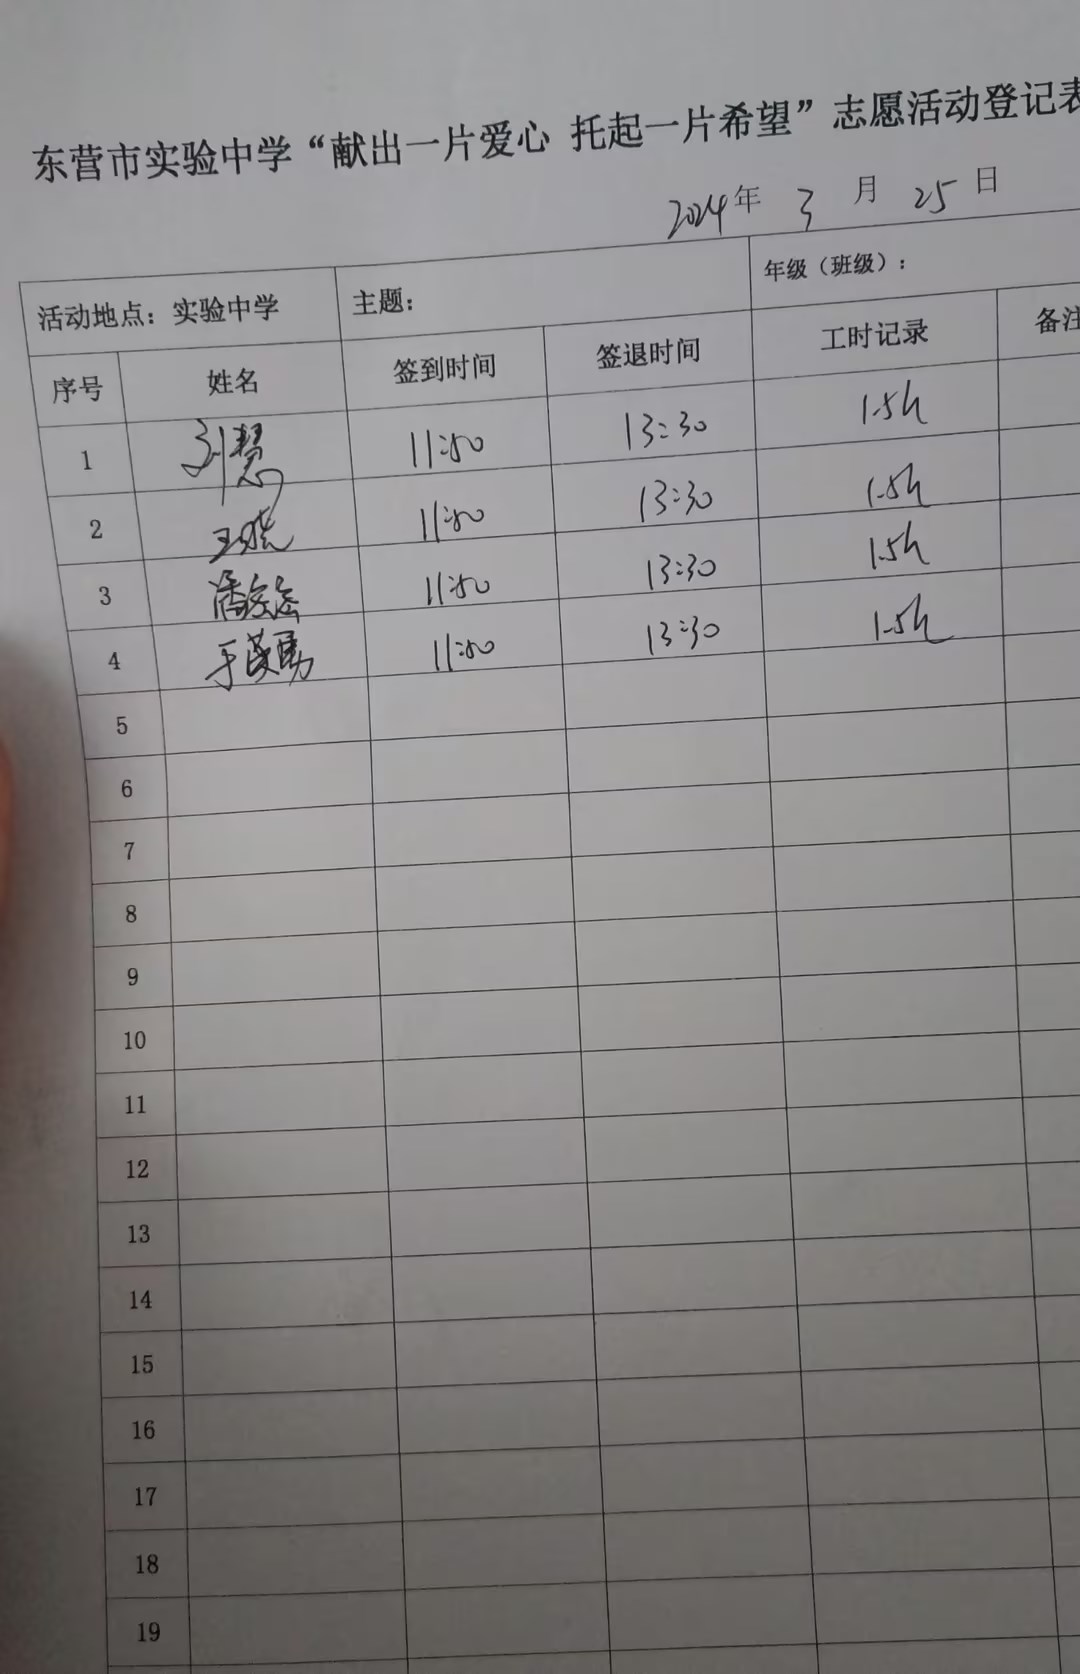 东营市实验中学“献出一片爱心 托起一片希望”志愿活动登记表
2024年 3 月 25 日
活动地点：实验中学 主题： 年级（班级）：
序号 姓名 签到时间 签退时间 工时记录 备注
1 刘慧 11:50 13:30 1.5h
2 王晓 11:50 13:30 1.5h
3 潘 11:50 13:30 1.5h
4 于英勇 11:50 13:30 1.5h
5
6
7
8
9
10
11
12
13
14
15
16
17
18
19